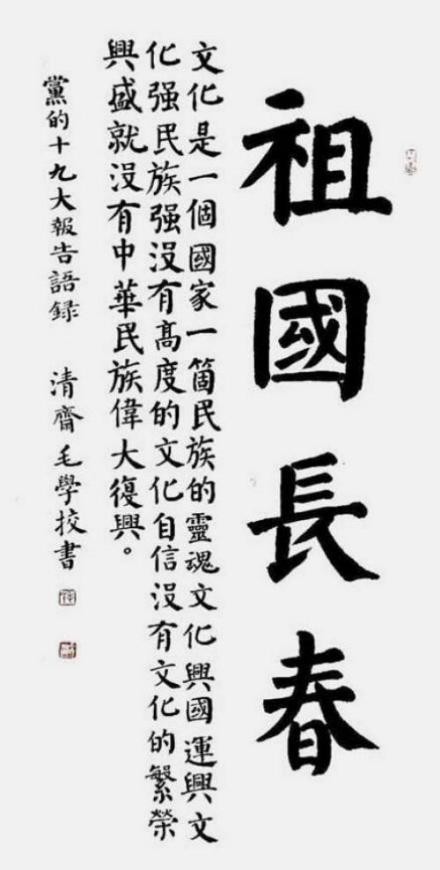 祖國長春
文化是一個國家一箇民族的靈魂文化興國運興文
化强民族强没有高度的文化自信没有文化的繁榮
興盛就没有中華民族偉大復興。
黨的十九大報告語録 清齋毛學挍書